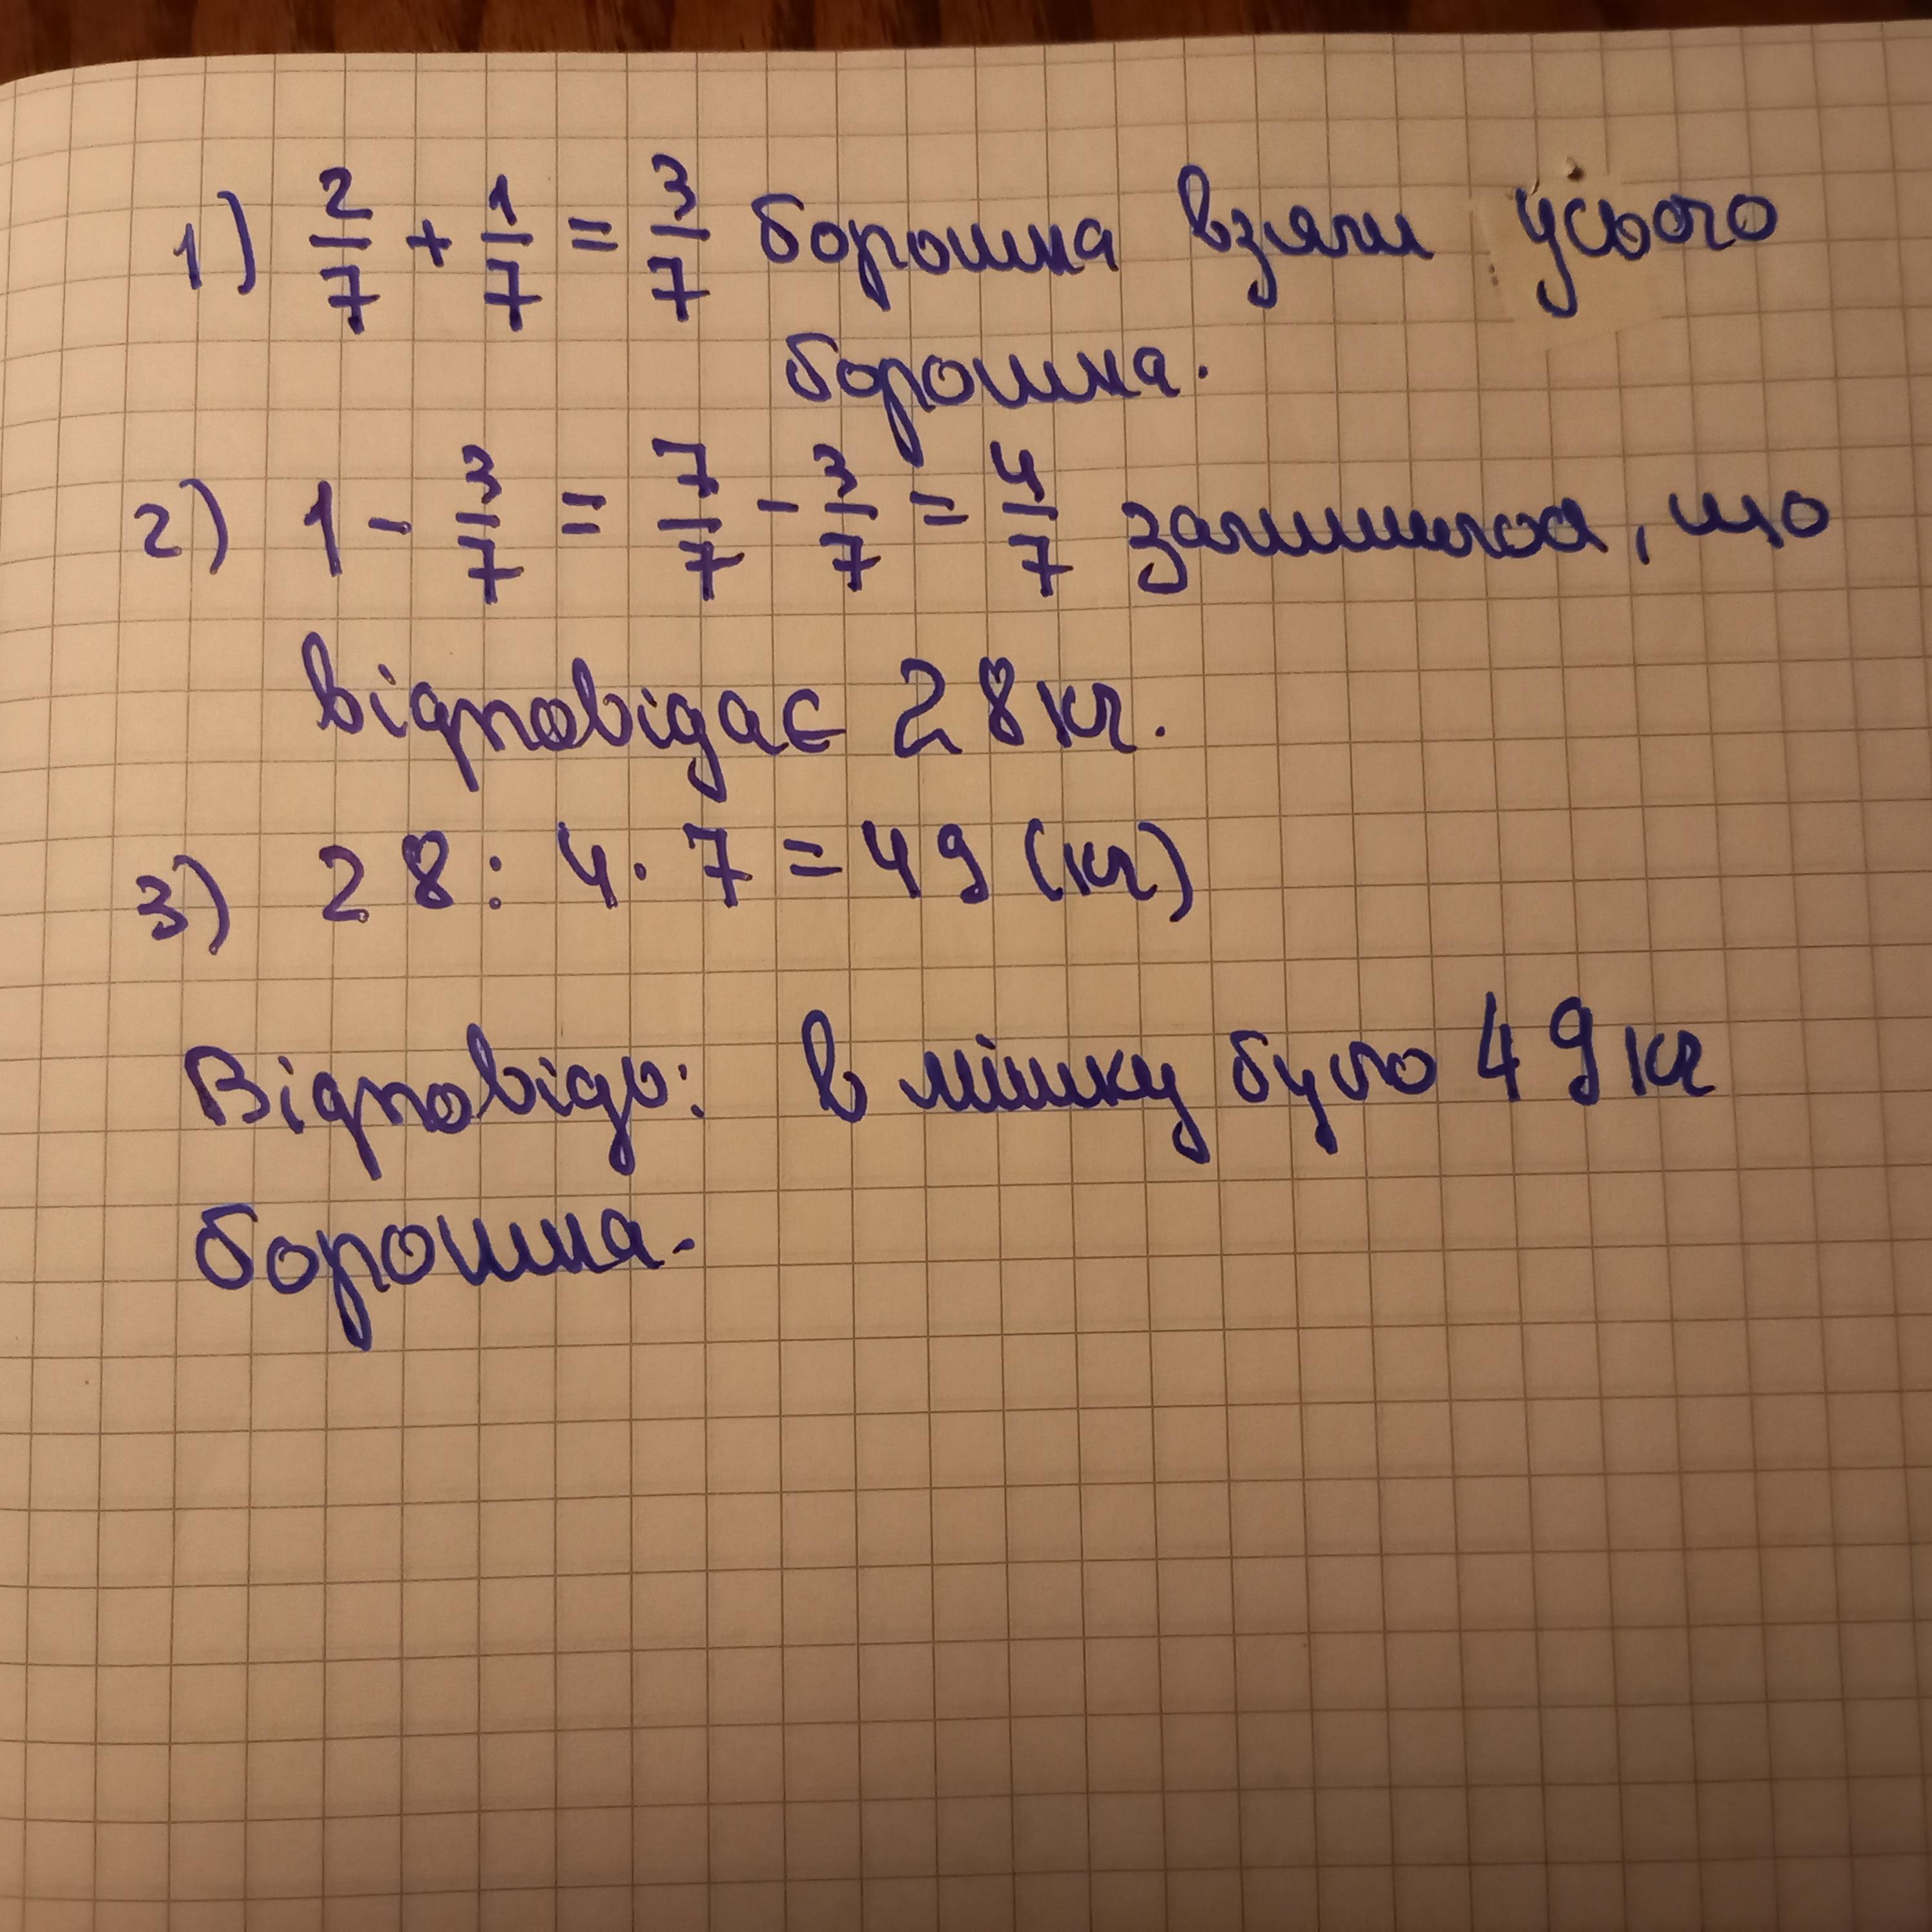 1) 2/7 + 1/7 = 3/7 борошна взяли усього
борошна.
2) 1 - 3/7 = 7/7 - 3/7 = 4/7 залишилося, що
відповідає 28 кг.
3) 28 : 4 · 7 = 49 (кг)
Відповідь: в мішку було 49 кг
борошна.